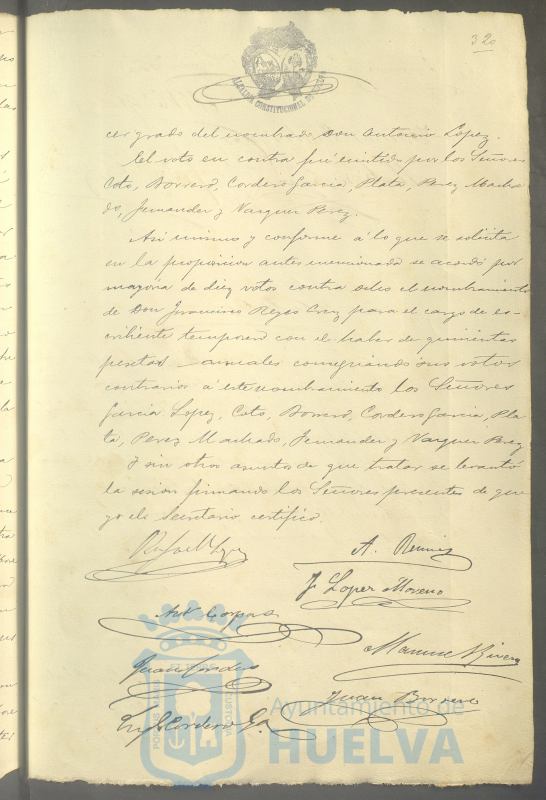 32
ALCALDIA CONSTITUCIONAL DE HUELVA
cer grado del nombrado Don Antonio Lopez.
El voto en contra fué emitido por los Señores
Coto, Borrero, Cordero Garcia, Plata, Perez Macha-
do, Fernandez y Vazquez Perez.
Asi mismo y conforme á lo que se solicita
en la proposicion antes mencionada se acordó por
mayoria de diez votos contra ocho el nombramiento
de Don Francisco Reyes Cruz para el cargo de es-
cribiente temporero con el haber de quinientas
pesetas anuales consignando sus votos
contrarios á este nombramiento los Señores
Garcia Lopez, Coto, Borrero, Cordero Garcia, Pla-
ta, Perez Machado, Fernandez y Vazquez Perez
Y sin otros asuntos de que tratar se levantó
la sesion firmando los Señores presentes de que
yo el Secretario certifico.
Rafael
A.
J Lopez Moreno
Manuel Rivera
Juan Cordero
Juan Borrero
Cordero Ga.
Ayuntamiento de
HUELVA